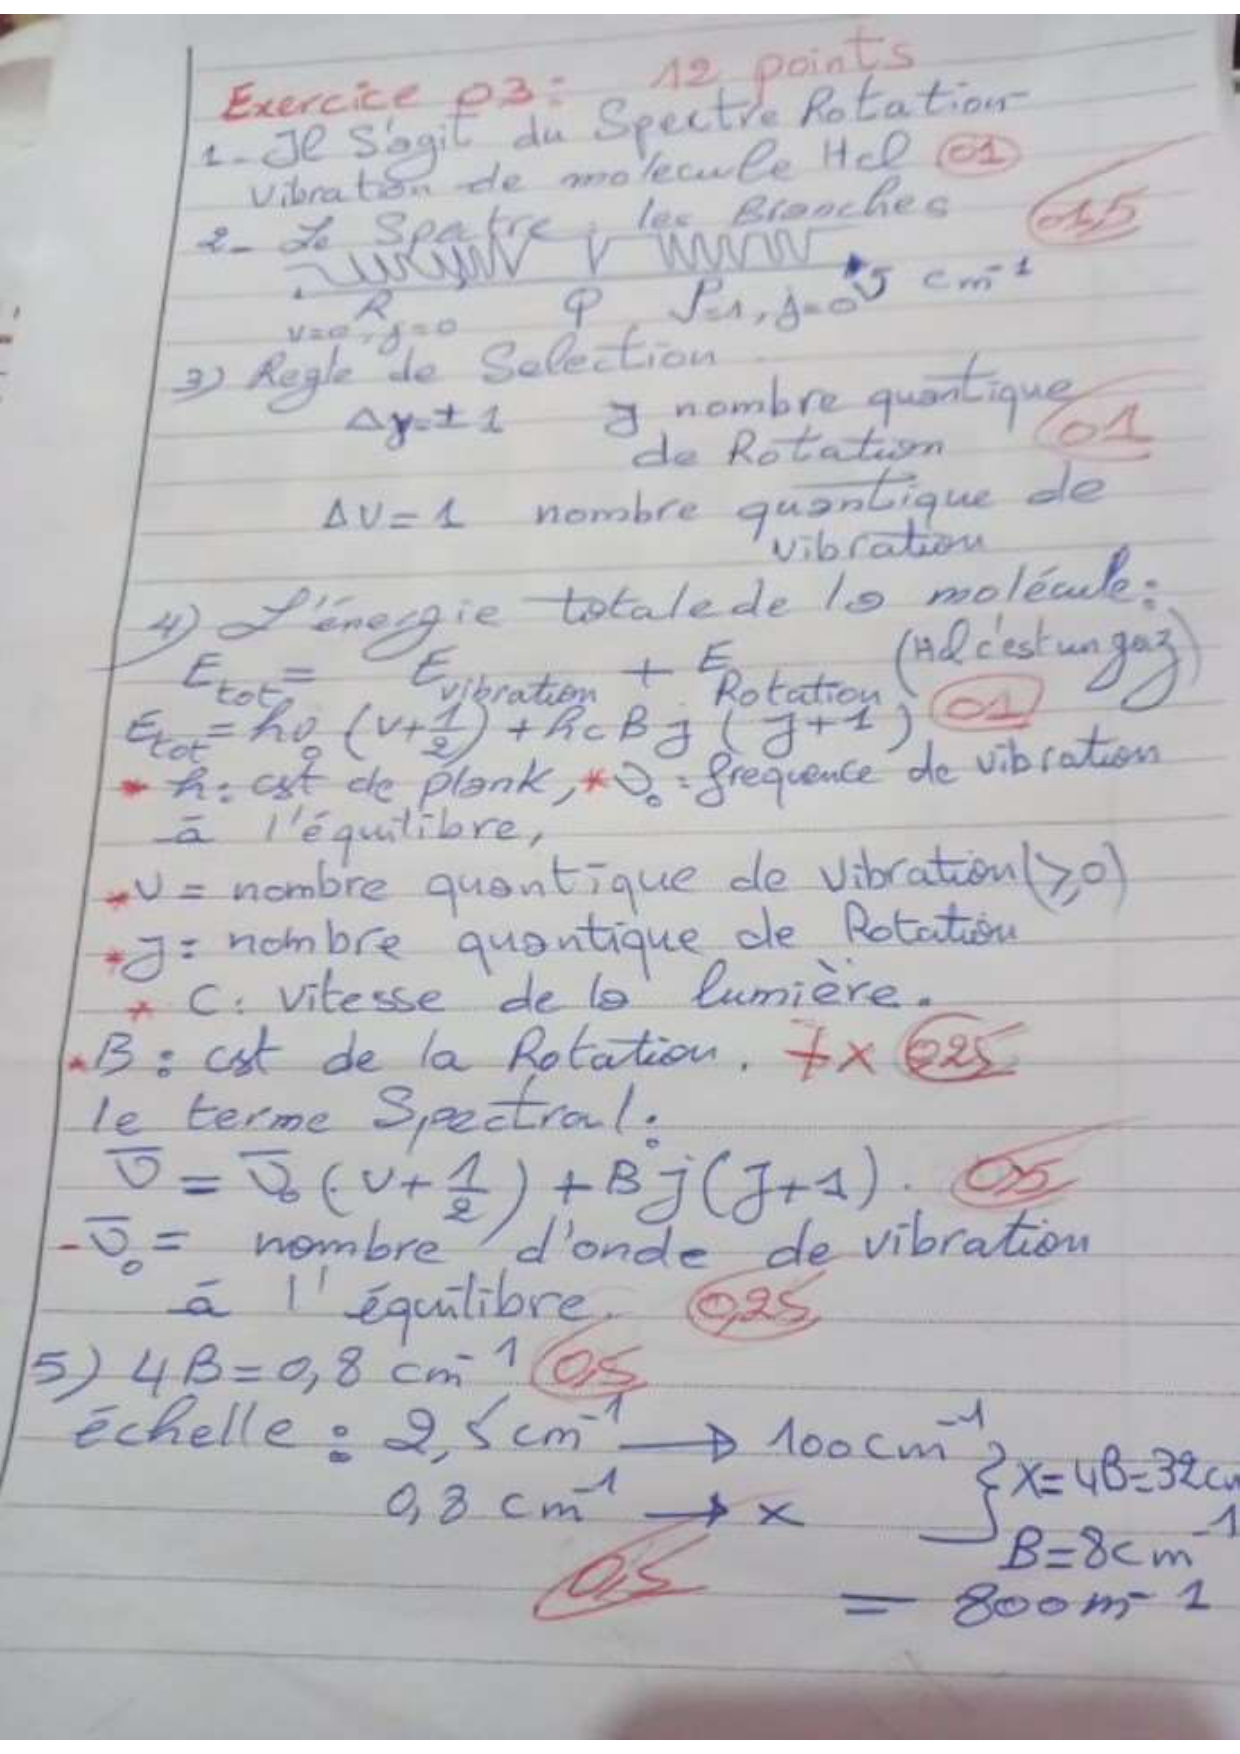 Exercice 03: 12 points
1- Il S'agit du Spectre Rotation-
Vibration de molécule Hcl 01
2- Le Spectre : les Branches 01,5
R Q P ῡ cm⁻¹
v=0, j=0 =1, j=0
3) Regle de Selection
Δj=±1 J nombre quantique
de Rotation 01
ΔV=1 nombre quantique de
Vibration
4) L'énergie totale de la molécule:
E tot = E vibration + E Rotation (Hcl c'est un gaz)
E tot = hν₀ (V+1/2) + hcBj (J+1) 01
* h: cst de plank, * ν₀: frequence de vibration
à l'équilibre,
* V = nombre quantique de Vibration (≥0)
* J: nombre quantique de Rotation
* C: Vitesse de la lumière.
* B: cst de la Rotation. 7x 0,25
le terme Spectral:
ῡ = ῡ₀ (V+1/2) + Bj(J+1). 0,5
- ῡ₀ = nombre d'onde de vibration
à l'équilibre. 0,25
5) 4B=0,8 cm⁻¹ 0,5
échelle: 2,5 cm⁻¹ → 100 cm⁻¹
0,8 cm⁻¹ → x } X=4B=32cm
B=8cm⁻¹
0,5 = 800m⁻¹